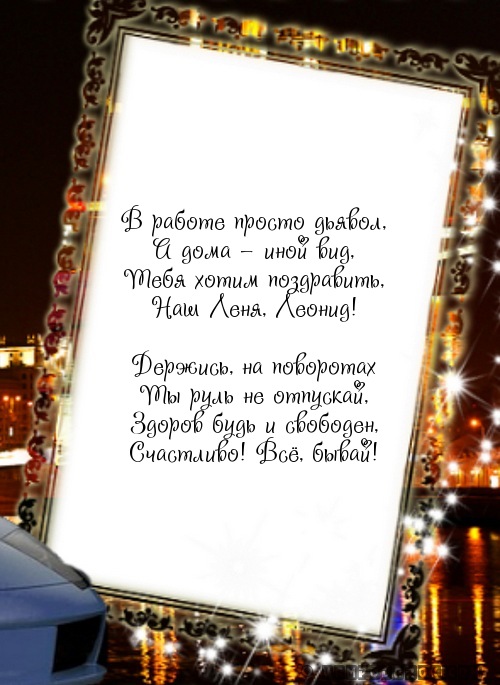 В работе просто дьявол,
А дома – иной вид,
Тебя хотим поздравить,
Наш Леня, Леонид!
Держись, на поворотах
Ты руль не отпускай,
Здоров будь и свободен,
Счастливо! Всё, бывай!